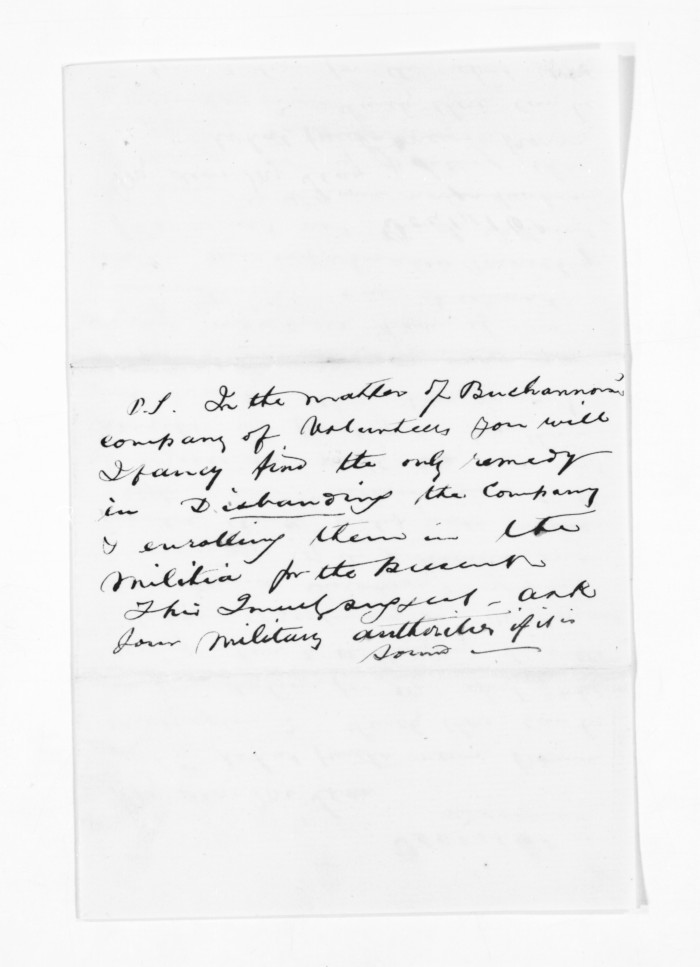 P.S. In the matter of Buchannon's
company of Volunteers you will
I fancy find the only remedy
in Disbanding the Company
& enrolling them in the
Militia for the present
This I merely suggest - ask
your Military authorities if it is
sound —